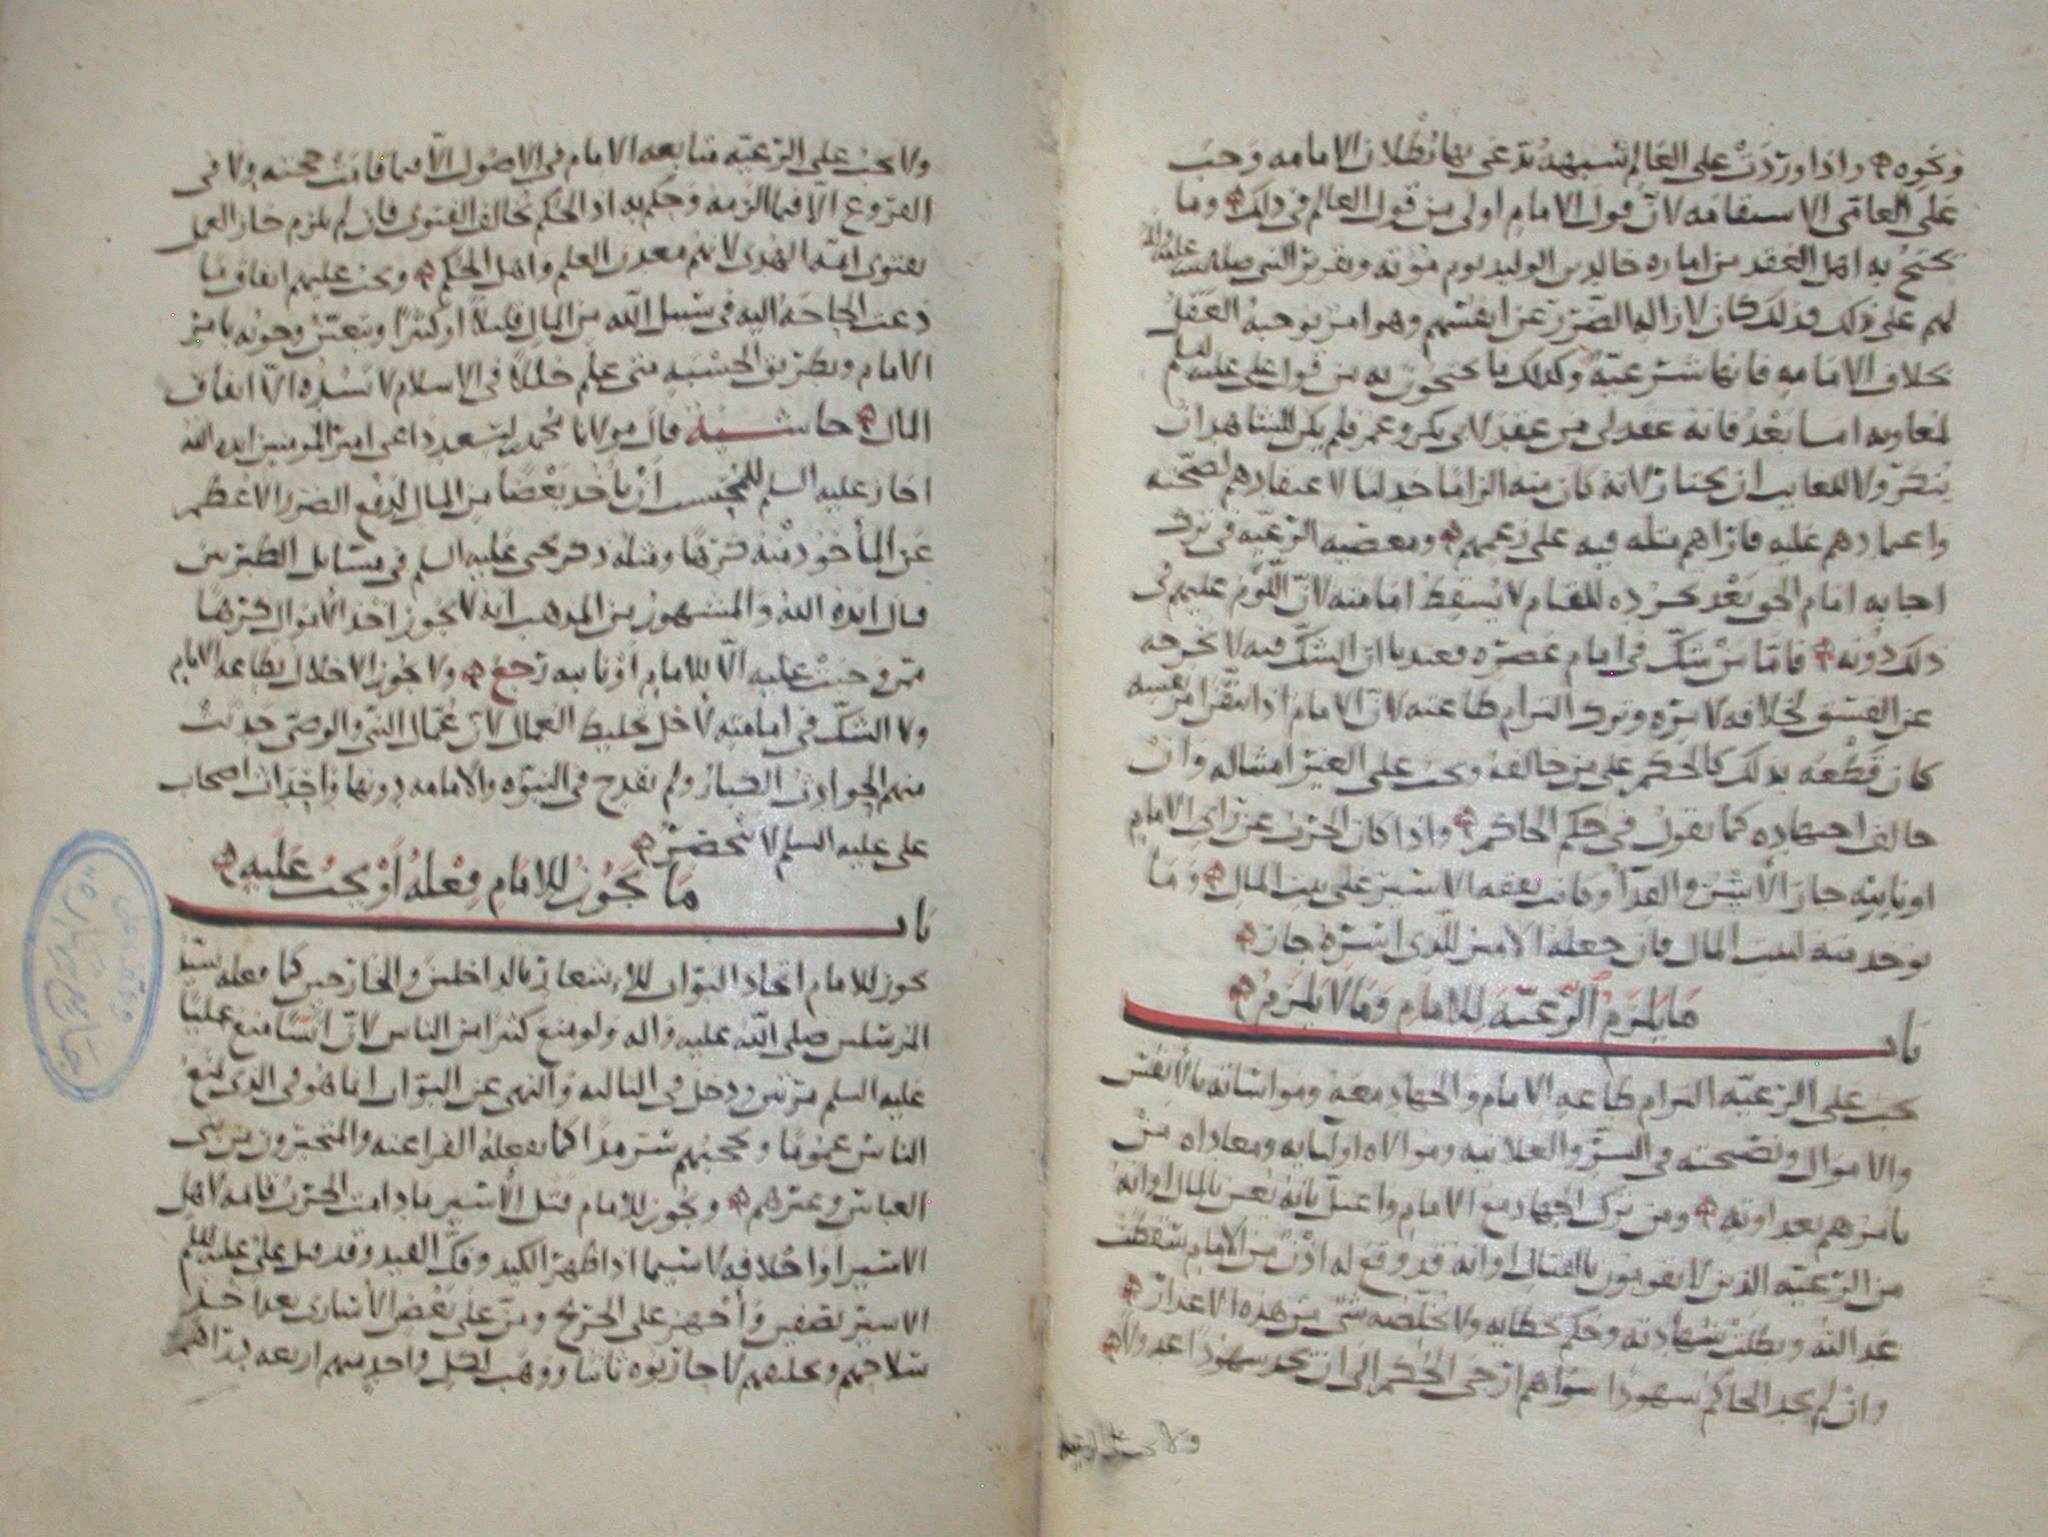 ونحوه واذا وردت على العالم شبهة تدعى بها بطلان الامامه وجب
على العامى الاستقامه لان قول الامام اولى من قول العالم فى ذلك وما
يحتج به اهل العقد من اماره خالد بن الوليد يوم موته وتقرير النبى صلى الله عليه واله
لهم على ذلك فذلك كان لازاله الضرر عن انفسهم وهو امر يوجبه العقل
بخلاف الامامه فانها شرعية وكذلك ما يحتجون به من قول على عليه السلم
لمعاويه اما بعد فانه عقد لى من عقد لابى بكر وعمر فلم يكن للشاهد ان
ينكر ولا للغايب ان يختار لانه كان منه الزاما جدليا لاعتقادهم لصحته
واعتمادهم عليه فاراهم مثله فيه على زعمهم ومعصيه الرعيه فى ترك
اجابه امام الحق بعد تجرده للقيام لا يسقط امامته لان اللوم عليهم فى
ذلك دونه فاما من شك فى امام عصره فعندنا ان الشك فيه لا يخرجه
عن الفسق لخلافه لامره وترك التزام طاعته لان الامام اذا من نفسه
كان قطعه بذلك كالحكم على من خالفه ويجب على الغير امتثاله وان
خالف اجتهاده كما نقول فى حكم الحاكم واذا كان الحرب عن راى الامام
او نايبه جاز الاسر والفدا وكانت نفقه الاسير على بيت المال وما
يوخذ منه لبيت المال فان جعله الامير للذى اسره جاز
باب ما يلزم الرعية للامام وما لا يلزم
يجب على الرعيه التزام طاعه الامام والجهاد معه ومواساته بالانفس
والاموال ونصيحته فى السر والعلانيه وموالاه اوليايه ومعاداه من
يامرهم بعداوته ومن ترك الجهاد مع الامام واعتل بانه يعين بالمال او انه
من الرعيه الذين لا يقومون بالقتال او انه قد وقع له اذن من الامام سقطت
عدالته وبطلت شهادته وحكم بخطايه ولا يخلصه شى من هذه الاعذار
وان لم يجد الحاكم شهودا سواهم ارجى الحكم الى ان يجد شهودا عدولا
ولا يجب على الرعيه
ولا يجب على الرعيه متابعه الامام فى الاصول الا فيما قامت حجته ولا فى
الفروع الا فيما الزمه وحكم به اذ الحكم يخالف الفتوى فان لم يلزم جاز العمل
بفتوى ائمه الهدى لانهم معدن العلم واهل الحكم ويجب عليهم انفاق ما
دعت الحاجه اليه فى سبيل الله من المال قليلا او كثيرا ويتعين وجوبه بامر
الامام وبطريق الحسبه متى علم خللا فى الاسلام لا يسده الا انفاق
المال حاشية قال مولانا محمد بن اسعد داعى امير المومنين ايده الله
اجاز عليه السلم للمحتسب ان ياخذ بعضا من المال لدفع الضرر الاعظم
عن الماخوذ منه كرها ومثله ذكر يحيى عليه السلم فى مسايل الطبريين
قال ايده الله والمشهور من المذهب انه لا يجوز اخذ الاموال كرها
ممن وجبت عليه الا للامام او نايبه رجع ولا يجوز الاخلال بطاعه الامام
ولا الشك فى امامته لاجل تخليط العمال لان عمال النبى والوصى حدثت
منهم الحوادث الكبار ولم يقدح فى النبوه والامامه دونها واحداث اصحاب
على عليه السلم لا تنحصر
باب ما يجوز للامام فعله او يجب عليه
يجوز للامام اتخاذ البواب للاشعار بالداخلين والخارجين كما فعله سيد
المرسلين صلى الله عليه واله ولو منع كثيرا من الناس لان انسا منع عليا
عليه السلم مرتين ودخل فى الثالثه والنهى عن البواب انما هو فى الذى يمنع
الناس عموما ويحجبهم سرمدا كما يفعله الفراعنه والمتجبرون من بنى
العباس وغيرهم ويجوز للامام قتل الاسير ما دامت الحرب قائمه لاهل
الاسير او احلافه لا سيما اذا ظهر الكيد وفك القيد وقد قتل على عليه السلم
الاسير بصفين واجهز على الجريح ومن على بعض الاسارى بعد اخذ
سلاحهم وتحليفهم لا حاربوه ثانيا ووهب لكل واحد منهم اربعه دراهم